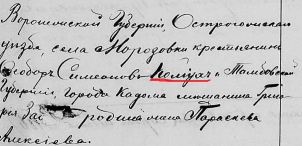 Воронежской Губерніи, Острогожскаго
уѣзда, села Нородовки крестьянинъ
Ѳеодоръ Симеоновъ Колтучъ и Тамбовской
Губерніи, города Кадома мѣщанина Григо
рія За родная жена Параскева
Алексіева.